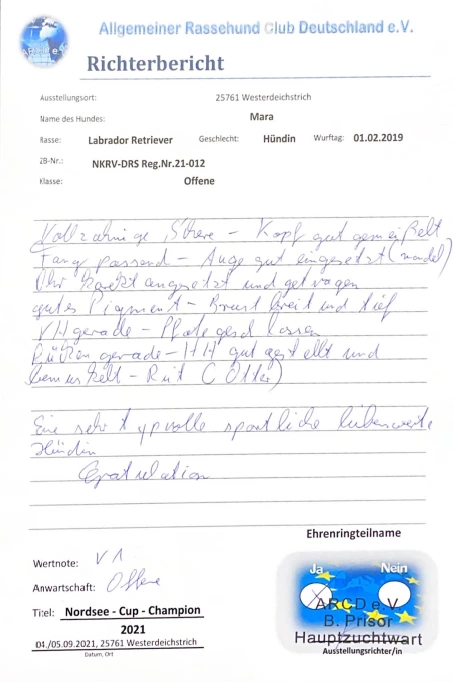 Allgemeiner Rassehund Club Deutschland e.V.
Richterbericht
Ausstellungsort: 25761 Westerdeichstrich
Name des Hundes: Mara
Rasse: Labrador Retriever Geschlecht: Hündin Wurftag: 01.02.2019
ZB-Nr.: NKRV-DRS Reg.Nr.21-012
Klasse: Offene
Vollzahnige Schere - Kopf gut gemeißelt
Fang passend - Auge gut eingesetzt (mandel)
Ohr korrekt angesetzt und getragen
gutes Pigment - Brust breit und tief
VH gerade - Pfote geschlossen
Rücken gerade - HH gut gestellt und
bemuskelt - Rut (Otter)
Eine sehr typvolle sportliche liebenswerte
Hündin
Gratulation
Ehrenringteilname
Wertnote: V1
Ja Nein
Anwartschaft: Offene
ARCD e.V.
B. Prisor
Hauptzuchtwart
Titel: Nordsee - Cup - Champion
2021
04./05.09.2021, 25761 Westerdeichstrich
Ausstellungsrichter/in
Datum, Ort